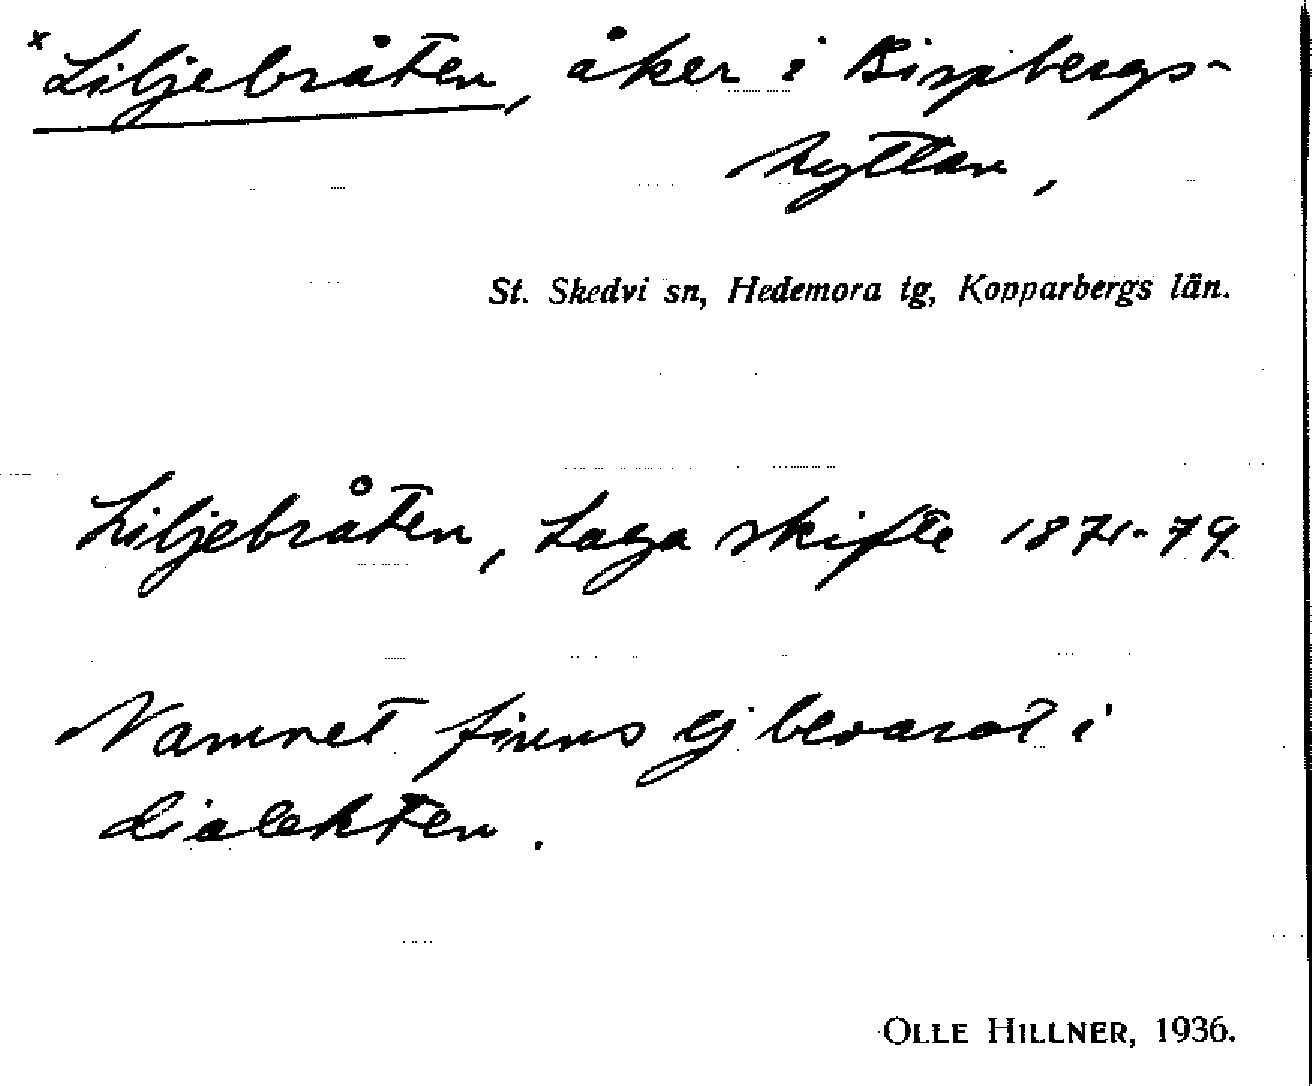 x Liljebråten, åker i Bispbergs-
hyttan,
St. Skedvi sn, Hedemora tg, Kopparbergs län.
Liljebråten, Laga skifte 1871-79.
Namnet finns ej bevarat i
dialekten.
OLLE HILLNER, 1936.